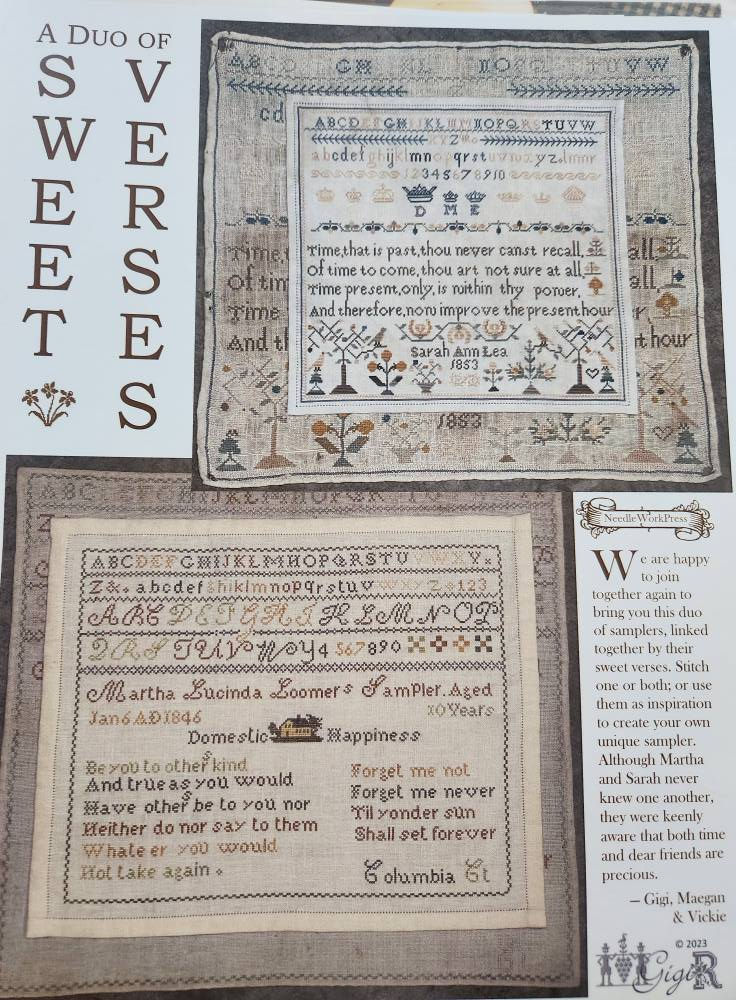 A DUO OF
SWEET
VERSES
ABCD GH KL NOPQ TUVW
cd
ABCDEFGHIJKLMNOPQRSTUVW
XYZ&o
abcdefghijklmnopqrstuvwxyz.
12345678910
D M E
Time, that is past, thou never canst recall,
Of time to come, thou art not sure at all,
Time present, only, is within thy power,
And therefore, now improve the present hour
Time, all
Of tim all,
Time
And th t hour
Sarah Ann Lea
1853
1853
ABCDEFGHIJKLMNOPQRSTU VWXY
Z&. abcdefghiklmnopqrstuvwxyz 123
ABCDEFGHIJKLMNOP
QRSTUVWY4567890
Martha Lucinda Loomers Sampler. Aged
Jan 6 AD 1846 10 Years
Domestic Happiness
Be you to others kind
And true as you would
Have others be to you nor
Neither do nor say to them
Whate er you would
Not take again
Forget me not
Forget me never
Til yonder sun
Shall set forever
Columbia Ct
NeedleWorkPress
We are happy
to join
together again to
bring you this duo
of samplers, linked
together by their
sweet verses. Stitch
one or both; or use
them as inspiration
to create your own
unique sampler.
Although Martha
and Sarah never
knew one another,
they were keenly
aware that both time
and dear friends are
precious.
– Gigi, Maegan
& Vickie
© 2023
Gigi R